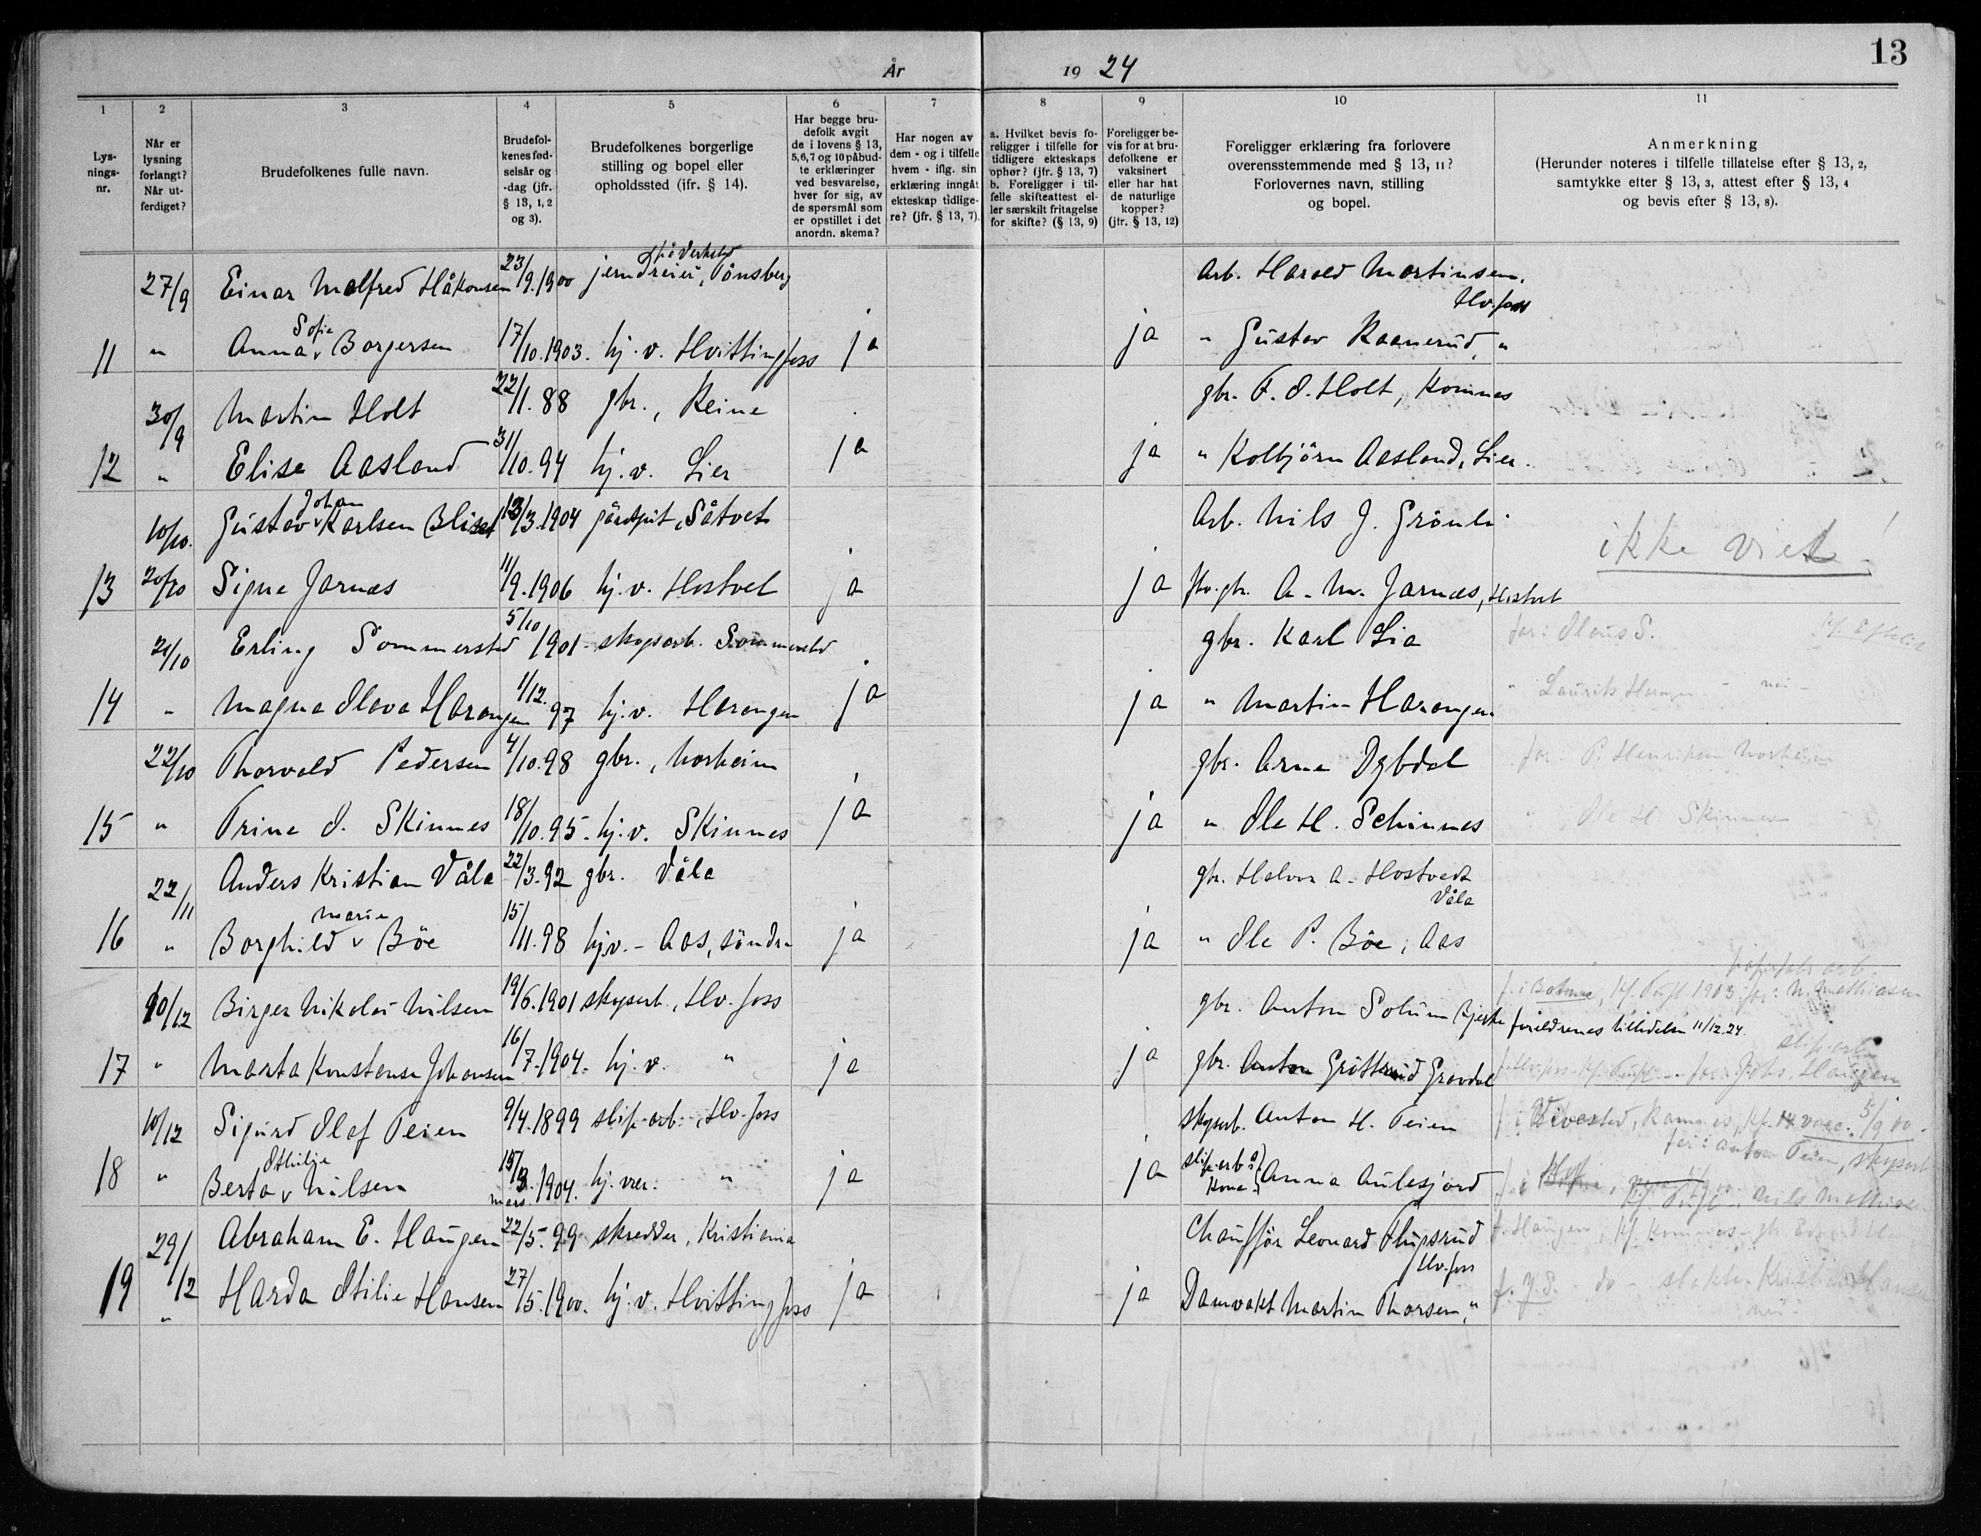 År 19 24
13
1 2 3 4 5 6 7 8 9 10 11
Lys-
nings-
nr.
Når er
lysning
forlangt?
Når ut-
ferdiget?
Brudefolkenes fulle navn.
Brudefol-
kenes fød-
selsår og
-dag (jfr.
§ 13, 1, 2
og 3).
Brudefolkenes borgerlige
stilling og bopel eller
opholdssted (jfr. § 14).
Har begge bru-
defolk avgit
de i lovens § 13,
5,6,7 og 10 påbud-
te erklæringer
ved besvarelse,
hver for sig, av
de spørsmål som
er opstillet i det
anordn. skema?
Har nogen av
dem - og i tilfelle
hvem - iflg. sin
erklæring inngått
ekteskap tidlige-
re? (jfr. § 13, 7).
a. Hvilket bevis fo-
religger i tilfelle for
tidligere ekteskaps
ophør? (jfr. § 13, 7)
b. Foreligger i til-
felle skifteattest el-
ler særskilt fritagelse
for skifte? (§ 13, 9)
Foreligger be-
vis for at bru-
defolkene er
vaksinert
eller har hat
de naturlige
kopper?
(jfr. § 13, 12)
Foreligger erklæring fra forlovere
overensstemmende med § 13, 11?
Forlovernes navn, stilling
og bopel.
Anmerkning
(Herunder noteres i tilfelle tillatelse efter § 13, 2,
samtykke efter § 13, 3, attest efter § 13, 4
og bevis efter § 13, 8).
27/9 Einar Malfred Håkonsen 23/9.1900 jerndreier, Tönsberg Arb. Harald Martinsen, Hv.foss
11 " Anna Sofie Borgersen 17/10.1903. hj.v. Hvittingfoss ja ja " Gustav Raanerud, "
30/9 Martin Holt 22/1.88 gbr., Reine gbr. F. O. Holt, Komnes
12 " Elise Aasland 31/10.94 hj.v. Lier ja ja " Kolbjörn Aasland, Lier.
10/10. Gustav Johan Karlsen 13/3.1904 Såtvet Arb. Nils J. Grönli
ikke viet!
13 20/10 Signe Jarnæs 11/9.1906 hj.v. Hostvet ja ja A. M. Jarnæs, Hostvet
21/10 Erling Sommersted 5/10 1901 skogsarb. Sommersted gbr. Karl Lia far: Olaus S.
14 " Magna Olava Harangen 1/12.97 hj.v. Harangen ja ja " Martin Harangen " Laurits Harangen
22/10 Thorvald Pedersen 4/10.98 gbr., Norheim gbr. Arne Dybdal far. P. Henriksen Norheim
15 " Trine O. Skinnes 18/10.95. hj.v. Skinnes ja ja " Ole H. Schinnes " Ole H. Skinnes
22/11 Anders Kristian Våla 22/3.92 gbr. Våla gbr. Halvor A. Hostvedt Våla
16 " Borghild Marie Böe 15/11.98 hj.v. - Aas, söndre ja ja " Ole P. Böe, Aas
10/12 Birger Nikolai Nilsen 19/6.1901 skogsarb., Hv.foss gbr. Anton Solum foreldrenes tilladelse 11/12.24.
17 " Marta Konstanse Johansen 16/7.1904. hj.v. " ja ja gbr. Anton Gröttrud Gravdal
10/12 Sigurd Olaf Teien 9/4.1899 slip.arb., Hv.foss skogsarb. Anton H. Teien
18 " Berta Othilie Nilsen 15/3. mars 1904. hj. vær. " ja ja slip.arb.s Kone Anna Aulesjord
far: Anton Teien, skogsarb
29/12 Abraham E. Haugen 22/5.99 skredder, Kristiania Chauffør Leonard Flugsrud Hv.foss
19 " Harda Otilie Hansen 27/5.1900. hj.v. Hvittingfoss ja ja Damvakt Martin Thorsen, "